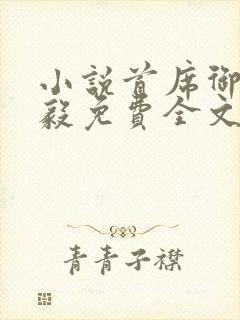 小說首席御
毅免費全文
青青子襟